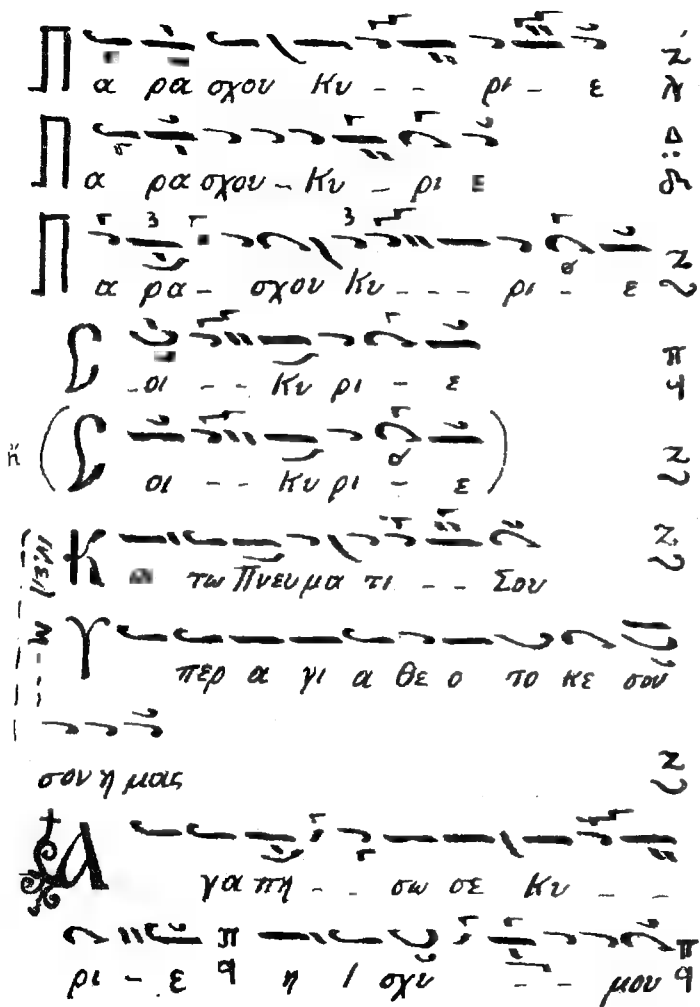 Πα ρα σχου Κυ - - ρι - ε
Πα ρα σχου - Κυ - ρι ε
Πα ρα - σχου Κυ - - - ρι - ε
Σοι - - Κυ ρι - ε
ἤ (Σοι - - Κυ ρι - ε)
Και τω Πνευ μα τι - - Σου
Υ περ α γι α θε ο το κε σου
σον η μας
Α γα πη - - σω σε Κυ - -
ρι - ε η Ι σχύ - - μου